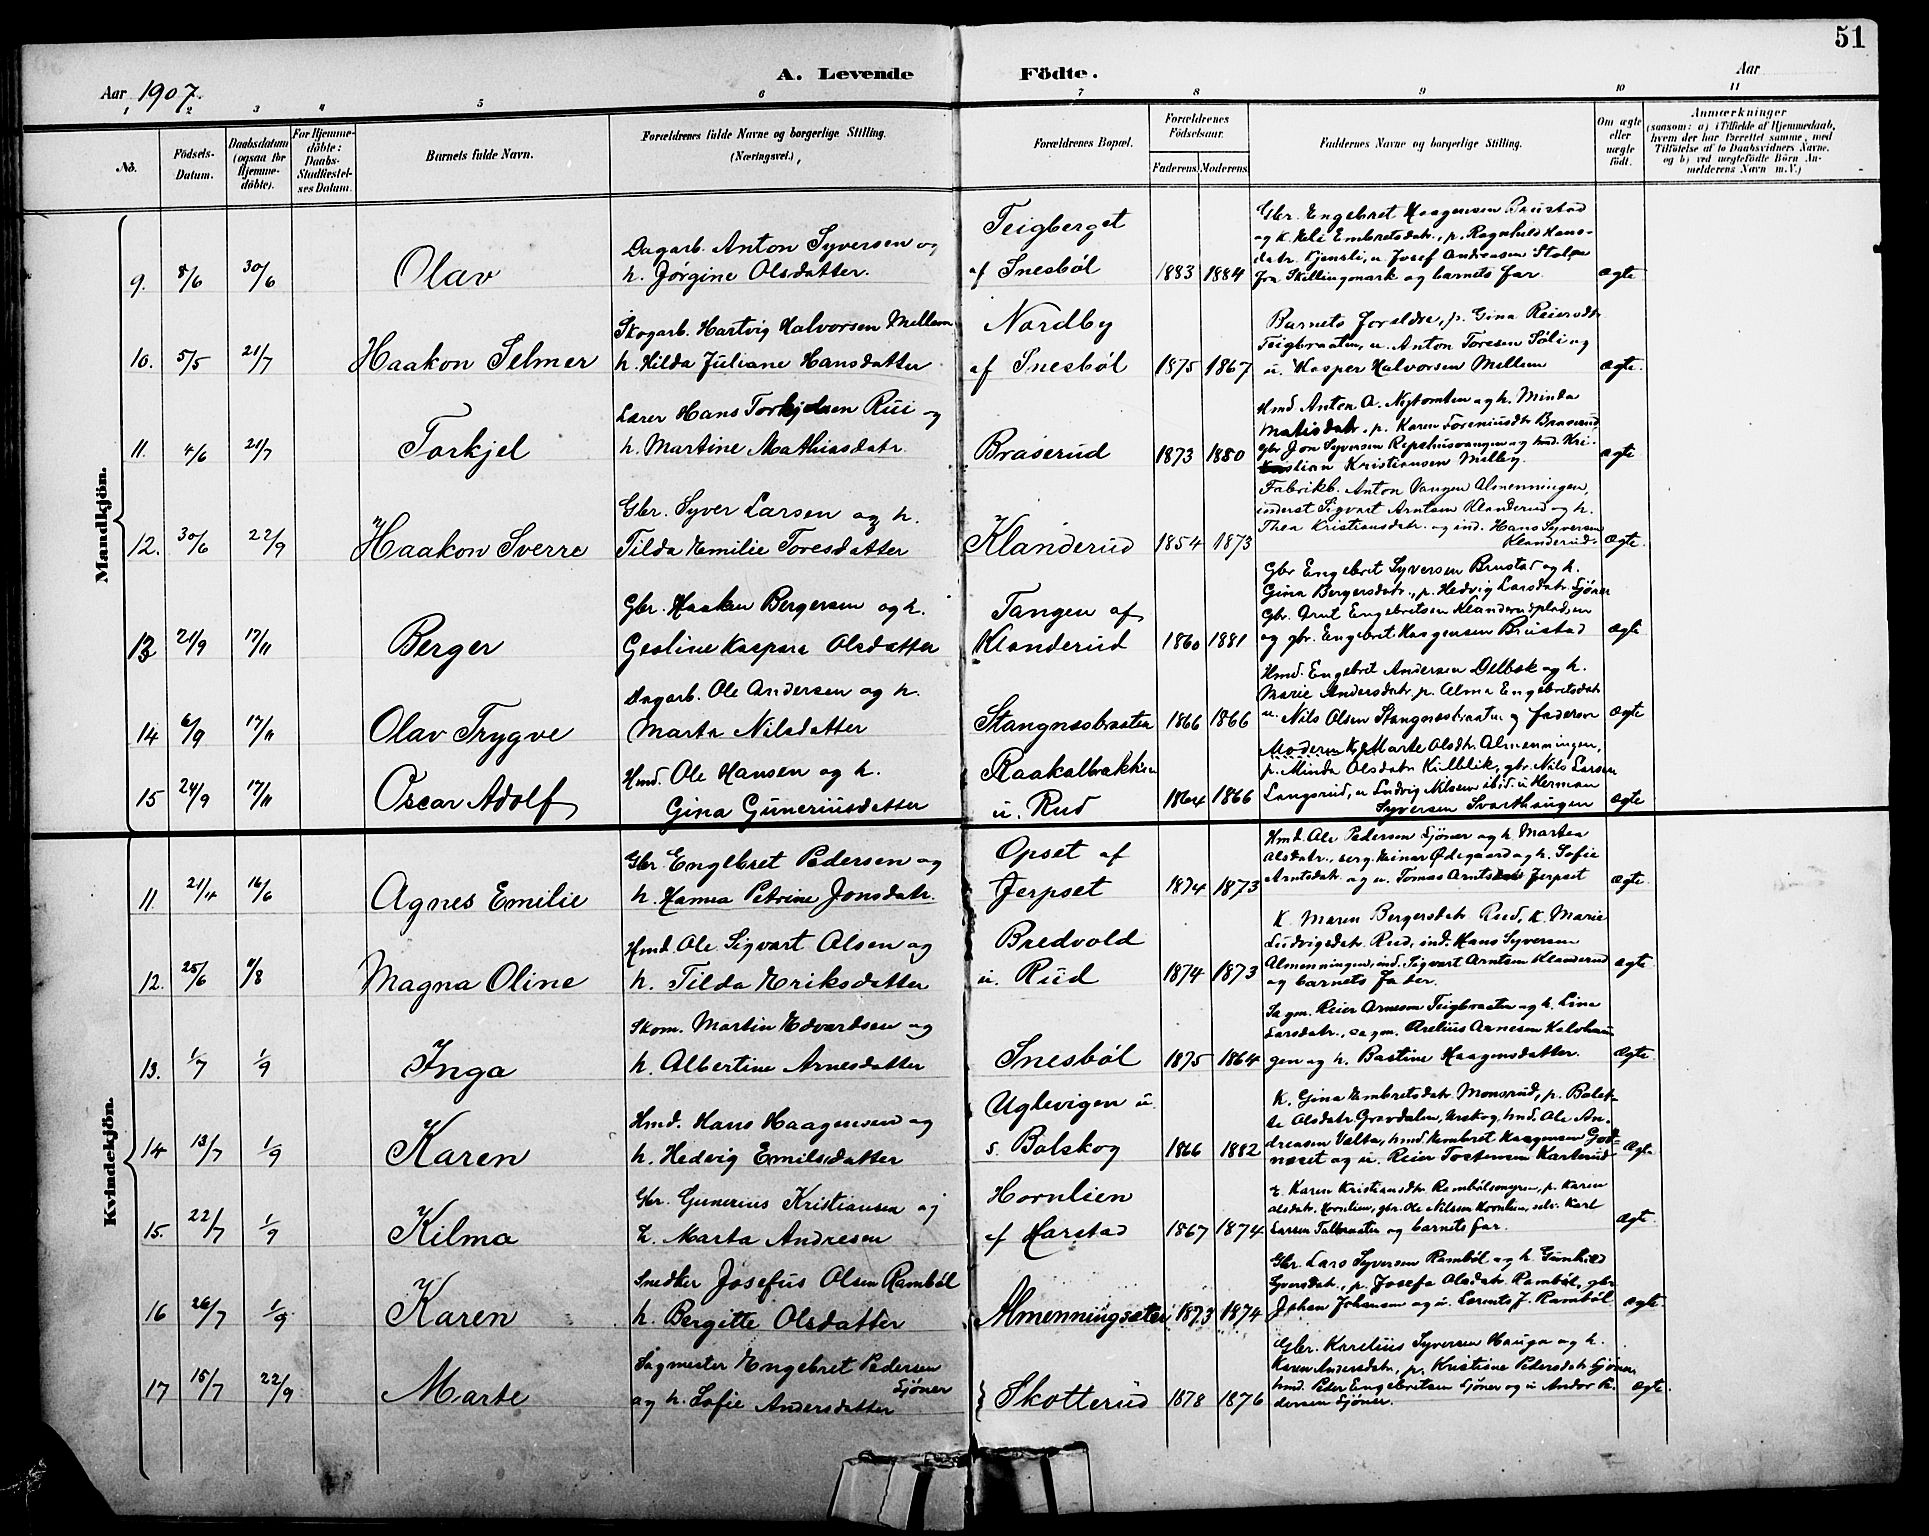 51
Aar 1907.
A. Levende Födte.
Aar
1 2 3 4 5 6 7 8 9 10 11
No.
Födsels-Datum.
Daabsdatum (ogsaa for Hjemme-döbte).
For Hjemme-döbte: Daabs-Stadfæstel-ses Datum.
Barnets fulde Navn.
Forældrenes fulde Navne og borgerlige Stilling. (Næringsvei.)
Forældrenes Bopæl.
Forældrenes Födselsaar.
Faderens Moderens
Faddernes Navne og borgerlige Stilling.
Om ægte eller uægte födt.
Anmærkninger
(saasom: a) i Tilfælde af Hjemmedaab, hvem der har forrettet samme, med Tilföielse af to Daabsvidners Navne, og b) ved uægtefödte Börn An-melderens Navn m.V.)
Mandkjön.
9. 8/6 30/6 Olav
Dagarb. Anton Syversen og
h. Jørgine Olsdatter.
Teigberget
af Snesböl
1883 1884
Gbr. Engebret Haagensen Brustad
og k. Keli Embretsdatr., p. Ragnhild Hans-
datr. u. Josef Andreasen Stolpe
fra Skillingmark og barnets far.
ægte
10. 5/5 21/7 Haakon Selmer
Skogarb. Hartvig Halvorsen Mellem
h. Hilda Juliane Hansdatter
Nordby
af Snesböl
1875 1867
Barnets foreldre, p. Gina Reiersdtr
Teigbraaten, u. Anton Toresen Söli og
u. Kasper Halvorsen Mellem
ægte.
11. 4/6 21/7 Torkjel
Lærer Hans Torkjelsen Rui og
h. Martine Mathiasdatr.
Braserud
1873 1880
Hmd Anton A. Nytomten og h. Minda
Matisdatr. p. Karen Foreniusdtr Braserud
gbr Jon Syversen Repshusvangen og hmd. Kri-
stian Kristiansen Melby.
ægte
12. 30/6 22/9 Haakon Sverre
Gbr. Syver Larsen og h.
Tilda Emilie Toresdatter
Klanderud
1854 1873
Fabrikb. Anton Vangen Almenningen,
inderst Sigvart Arntsen Klanderud og h.
Thea Kristiansdatr. og ind. Hans Syversen
Klanderud.
ægte.
13 21/9 17/11 Berger
Gbr. Haaken Bergersen og h.
Geoline Kaspara Olsdatter
Tangen af
Klanderud
1860 1881
Gbr Engebret Syversen Brustad og h.
Gina Bergersdatr., p. Hedvig Larsdatr. Sjöner
Gbr. Arnt Engebretsen Klanderudpladsen
og gbr. Engebret Haagensen Brustad
ægte
14 6/9 17/11 Olav Trygve
Dagarb. Ole Andersen og h.
Marta Nilsdatter
Stangnesbraaten
1866 1866
Hmd. Engebret Andersen Delbæk og h.
Marie Andersdatr. p. Alma Engebretsdatr
u. Nils Olsen Stangnesbraaten og faderen
ægte
15 24/9 17/11 Oscar Adolf
Hmd. Ole Hansen og h.
Gina Guneriusdatter
Raakalbrakken
u. Rud
1864 1866
Moderen K. Marte Olsdtr. Almenningen,
p. Minda Olsdatr. Kilblik, gbr. Nils Larsen
Langsrud, u. Ludvig Nilsen ibid. u. Herman
Syversen Svarthaugen
ægte
Kvindekjön.
11 21/4 16/6 Agnes Emilie
Gbr. Engebret Pedersen og
h. Hanna Petrine Jonsdatr.
Opset af
Jerpset
1874 1873
Hmd. Ole Pedersen Sjöner og h. Martea
Olsdatr., serg. Einar Ødegaard og h. Sofie
Arntsdatr. og u. Tomas Arntsen Jerpset
ægte
12. 25/6 11/8 Magna Oline
Hmd. Ole Sigvart Olsen og
h. Tilda Eriksdatter
Bredvold
u. Rud
1874 1873
K. Maren Bergersdatr. Rud, K. Marie
Ludvigsdatr. Rud, ind. Hans Syversen
Almenningen, ind. Sigvart Arntsen Klanderud
og barnets fader.
ægte
13. 1/7 1/9 Inga
Skom. Martin Edvardsen og
h. Albertine Arnesdatter
Snesböl
1875 1864
Sagm. Reier Arnesen Teigbraaten og h. Lina
Larsdatr., sagm. Arelius Arnesen Kalvhau
gen og h. Bastine Haagensdatter.
ægte
14 13/7 1/9 Karen
Hmd. Hans Haagensen og
h. Hedvig Emilsdatter
Uglevigen u.
s. Bolskog
1866 1882
K. Gina Embretsdatr. Monsrud, p. Bolet-
te Olsdatr. Gravdalen, Urskog, hmd. Ole An-
dreasen Valta, hmd. Embret Haagensen God-
næset og u. Reier Tostensen Karterud
ægte
15. 22/7 1/9 Kilma
Gbr. Gunerius Kristiansen og
h. Marta Andresen
Hornlien
af Harstad
1867 1874
E. Karen Kristiansdtr. Rambölsengen, p. Karen
Olsdatr. Hornlien, gbr. Ole Nilsen Hornlien, selv. Karl
Larsen Talbraaten og barnets far.
ægte
16 26/7 1/9 Karen
Snedker Josefus Olsen Ramböl
h. Bergitte Olsdatter
Almenningsæter
1873 1874
Gbr. Lars Syversen Ramböl og h. Gunhild
Syversdatr., p. Josefa Olsdatr. Ramböl, gbr.
Johan Johansen og u. Lorents J. Ramböl
ægte
17 15/7 22/9 Marte
Sagmester Engebret Pedersen
Sjöner
og h. Sofie Andersdatter
Skotterud
1878 1876
Gbr. Karelius Syversen Hauga og h.
Karen Andersdatr., p. Kristine Pedersdatr. Sjöner,
hmd. Peder Engebretsen Sjöner og u. Andor Pe-
dersen Sjöner.
ægte